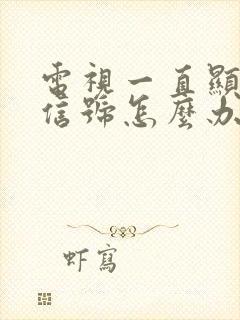 電視一直顯
信號怎麼办
虾寫